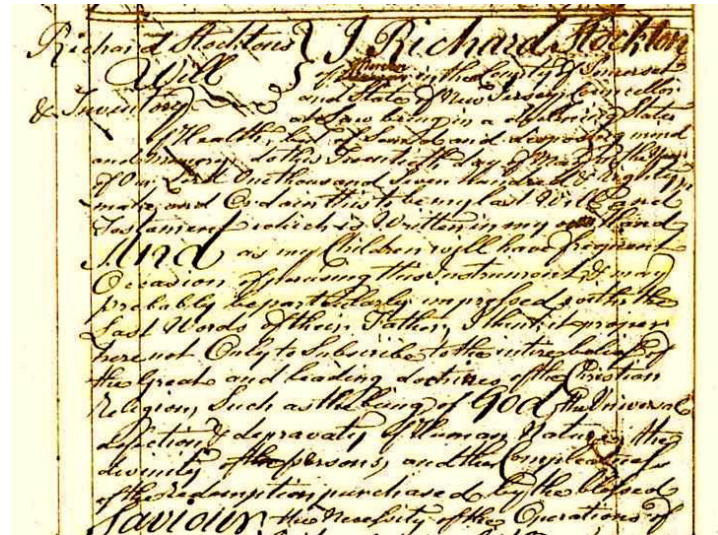 Richard Stocktons } I Richard Stockton
Will } of in the County of Somerset
& Inventory and State of New Jersey Councellor
at Law being in a declining State
of Health, but of Sound and disposing mind
and memory, do this Twentieth day of May in the Year
of Our Lord One thousand Seven hundred & Eighty
make and Ordain this to be my last Will and
Testament which is Written in my own Hand
And as my Children will have frequent
Occasion of perusing this Instrument & may
probably be particularly impressed with the
Last Words of their Father, I think it proper
here not Only to Subscribe to the intire belief of
the great and leading doctrines of the Christian
Religion, Such as the being of GOD, the Universal
defection & depravaty of Human Nature, the
divinity of the persons, and the Compleatness
of the redemption purchased by the blessed
Saviour, the Necessity of the Operations of